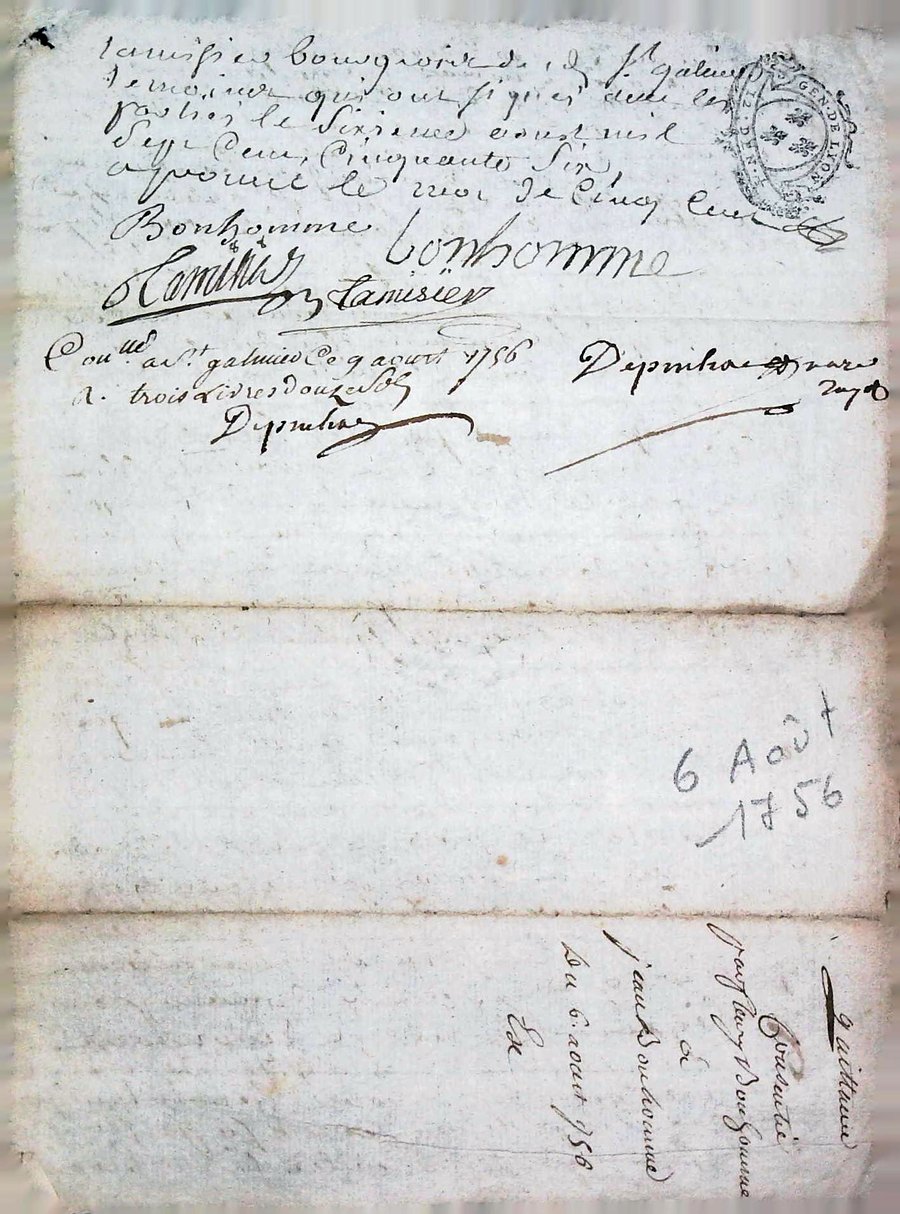 tamisier bourgeois de St galmier
temoins qui ont signés avec les
parties le sixieme aoust mil
Sept Cent Cinquante Six
aprouvé le mot de Cinq Cent
Bonhomme bonhomme
tamisier
GEN. DE LYON
Con.llé a St. galmier Ce 9 aoust 1756
R. trois Livres douze Sols
6 Août
1756
quittance
Consentie
Bonhomme
à
jean Bonhomme
Du 6. aoust 1756